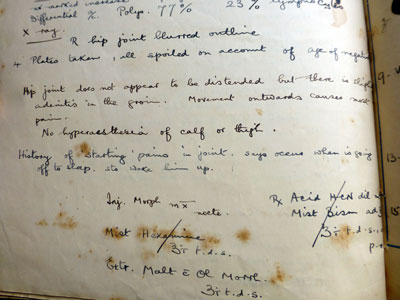 Differential %. Polys. 77% 23%
X ray.
R hip joint blurred outline
4 Plates taken, all spoiled on account of age of negative
Hip joint does not appear to be distended but there is slight
adenitis in the groin. Movement outwards causes most
pain.
No hyperaesthesia of calf or thigh.
History of starting pains in joint. says occurs when is going
off to sleep, sts wake him up.
Inj. Morph mx
nocte.
Rx Acid HCN dil
Mist Bism
Mist Hexamine
ʒi t.d.s.
ʒi t.d.s.
Extr. Malt c̄ Ol Morrh.
ʒi t.d.s.
9.
13.
15